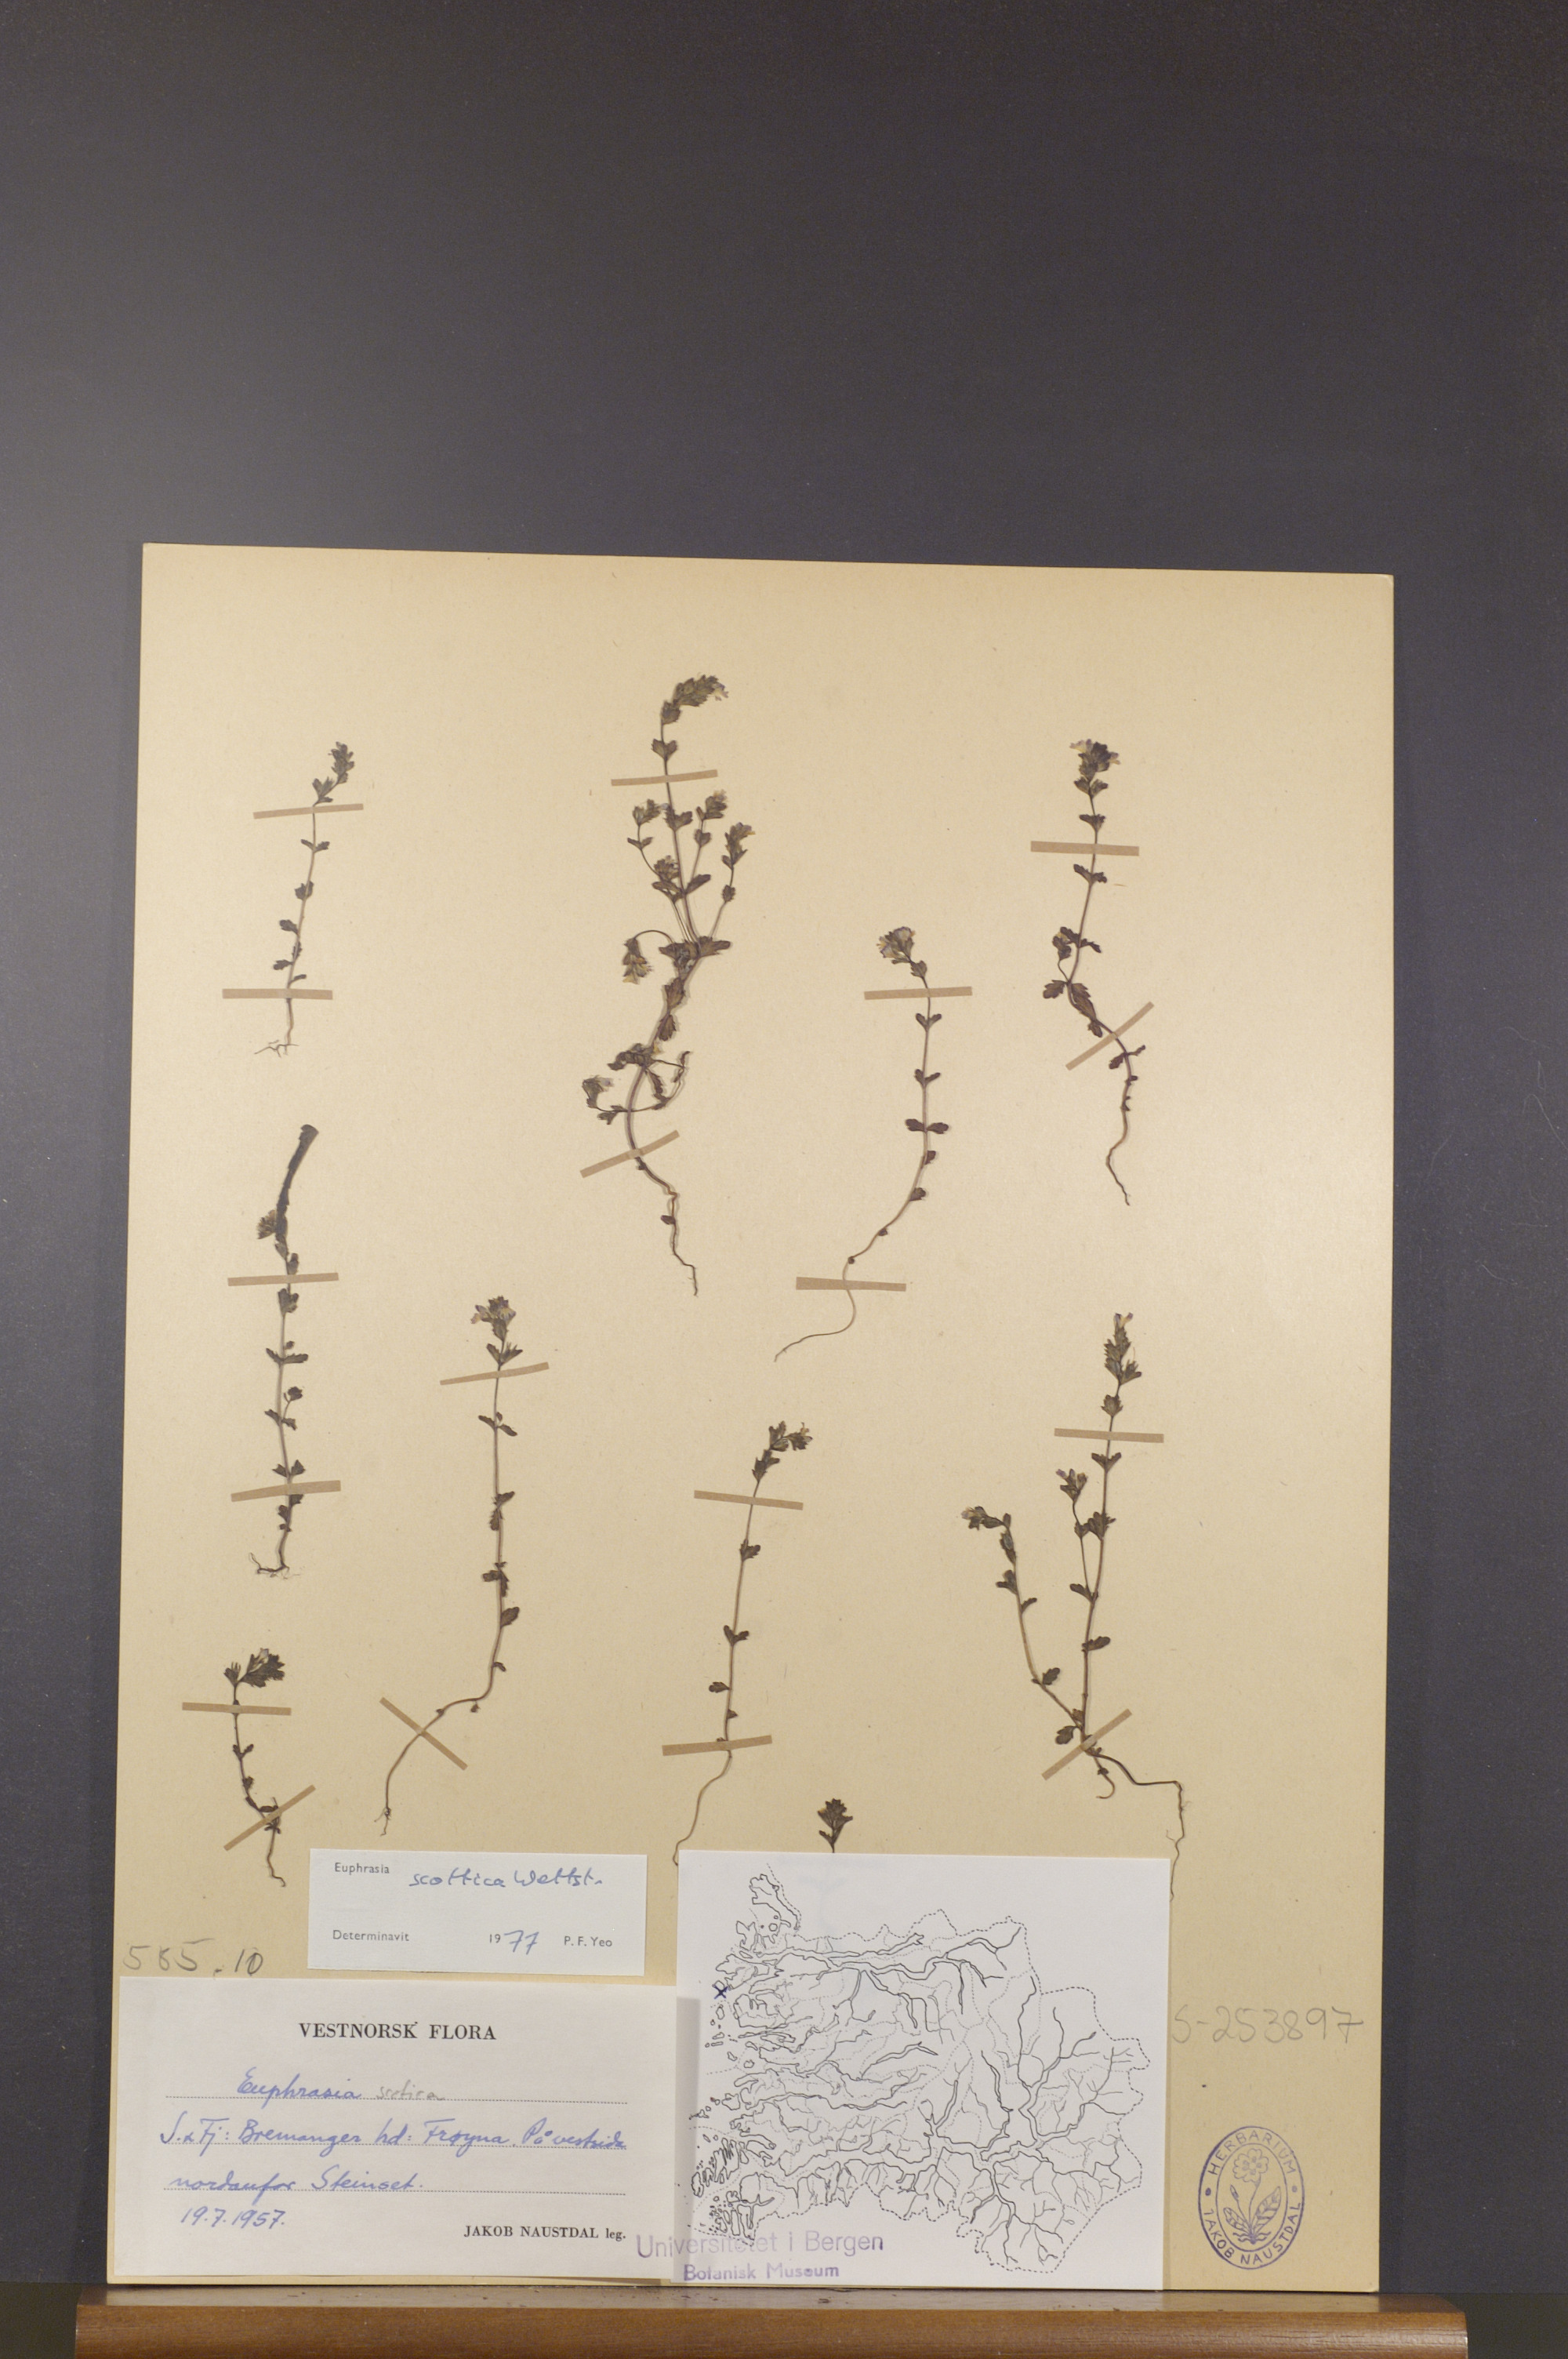 Euphrasia scottica Wettst.
Determinavit 1977 P. F. Yeo
565.10
VESTNORSK FLORA
Euphrasia scotica
S.&Fj: Bremanger hd: Frøyna. På vestsida
nordanfor Steinset.
19.7.1957.
JAKOB NAUSTDAL leg.
Universitetet i Bergen
Botanisk Museum
S-253897
HERBARIUM
JAKOB NAUSTDAL